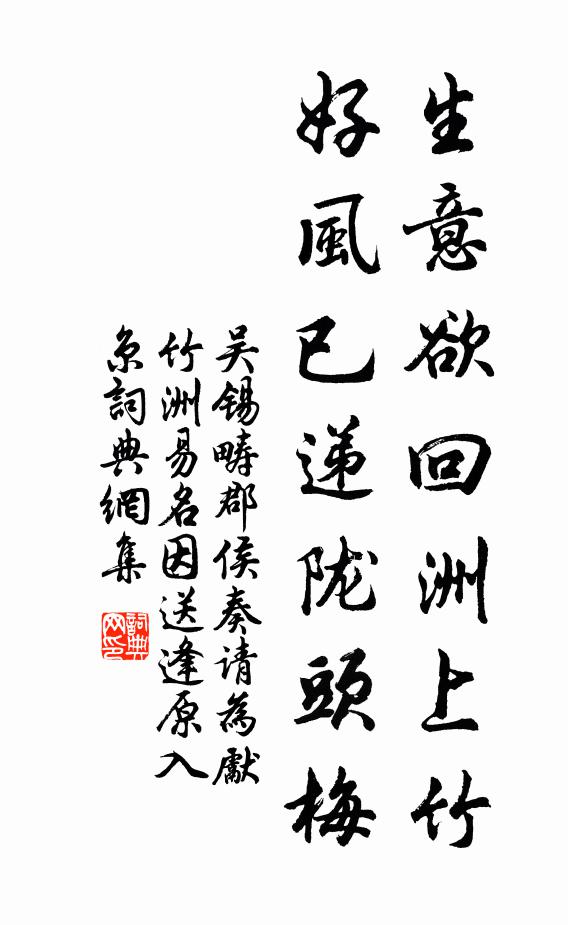 生意欲回洲上竹
好風已递陇頭梅
吴锡畴郡侯奏请為獻
竹洲易名因送逢原入
京詞典網集
詞典
网印